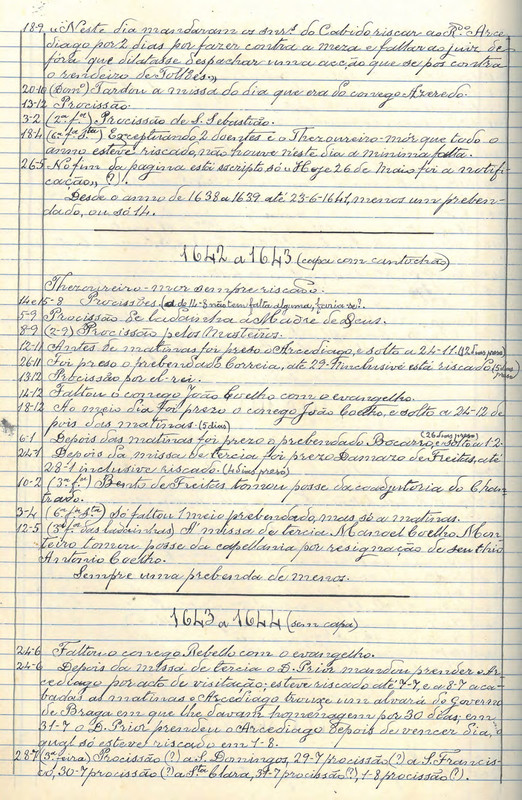 18-9 "Neste dia mandaram os snrs. do Cabido riscar ao Rdo. Arce-
diago por 2 dias por fazer contra a meza e faltar ao juiz de
fóra que dilatasse despachar uma acção que se pos contra
o rendeiro de Tolões"
20-10 (Domo) Tardou a missa do dia que era do conego Azeredo.
13-12 Procissão.
3-2 (2ª fra) Procissão de S. Sebastião.
18-4 (6ª fra Sta) Exceptuando 2 doentes e o Thezoureiro-mór que todo o
anno esteve riscado, não houve neste dia a minima falta.
26-5 No fim da pagina está escripto só "Hoje 26 de Maio foi a notifi-
cação" (?).
Desde o anno de 1638 a 1639 até 23-6-1641, menos um preben-
dado, ou só 14.
1642 a 1643 (capa com cantochão)
Thezoureiro-mór sempre riscado.
14 e 15-8 Procissões. (a de 14-8 não tem falta alguma,
5-9 Procissão de ladainha á Madre de Deus.
8-9 (2-9) Procissão pelos Mesteiros.
12-11 Antes de matinas foi preso o Arcediago, e solto a 24-11. (12 dias preso)
26-11 Foi preso o prebendado Correia, até 29-11 inclusive está riscado (5 dias preso)
13-12 Procissão por el-rei.
14-12 Faltou o conego João Coelho com o evangelho.
18-12 Ao meio dia foi prezo o conego João Coelho, e solto a 24-12 de-
pois das matinas. (5 dias)
6-1 Depois das matinas foi prezo o prebendado Bocarro, e solto a 1-2. (26 dias preso)
24-1 Depois da missa de tercia foi prezo Damazo de Freitas, até
28-1 inclusive riscado. (4 dias prezo)
10-2 (3ª fra) Bento de Freitas tomou posse da coadjutoria do Chan-
trado.
3-4 (6ª fra Sta) Só faltou 1 meio prebendado, mas só a matinas.
12-5 (3ª fra das ladainhas) A' missa de tercia Manoel Coelho Mon-
teiro tomou posse da capellania por resignação de seu thio
António Coelho.
Sempre uma prebenda de menos.
1643 a 1644 (sem capa)
24-6 Faltou o conego Rebello com o evangelho.
24-6 Depois da missa de tercia o D. Prior mandou prender o Ar-
cediago por acto de visitação; esteve riscado até 7-7, e a 8-7 aca-
badas as matinas o Arcediago trouxe um alvará do Governo
de Braga em que lhe davam homenagem por 30 dias; em
31-7 o D. Prior prendeu o Arcediago depois de vencer dia, o
qual só esteve riscado em 1-8.
28-7 (3ª feira) Procissão (?) a S. Domingos, 29-7 procissão (?) a S. Francis-
co, 30-7 procissão (?) a Sta Clara, 31-7 procissão (?), 1-8 procissão (?).